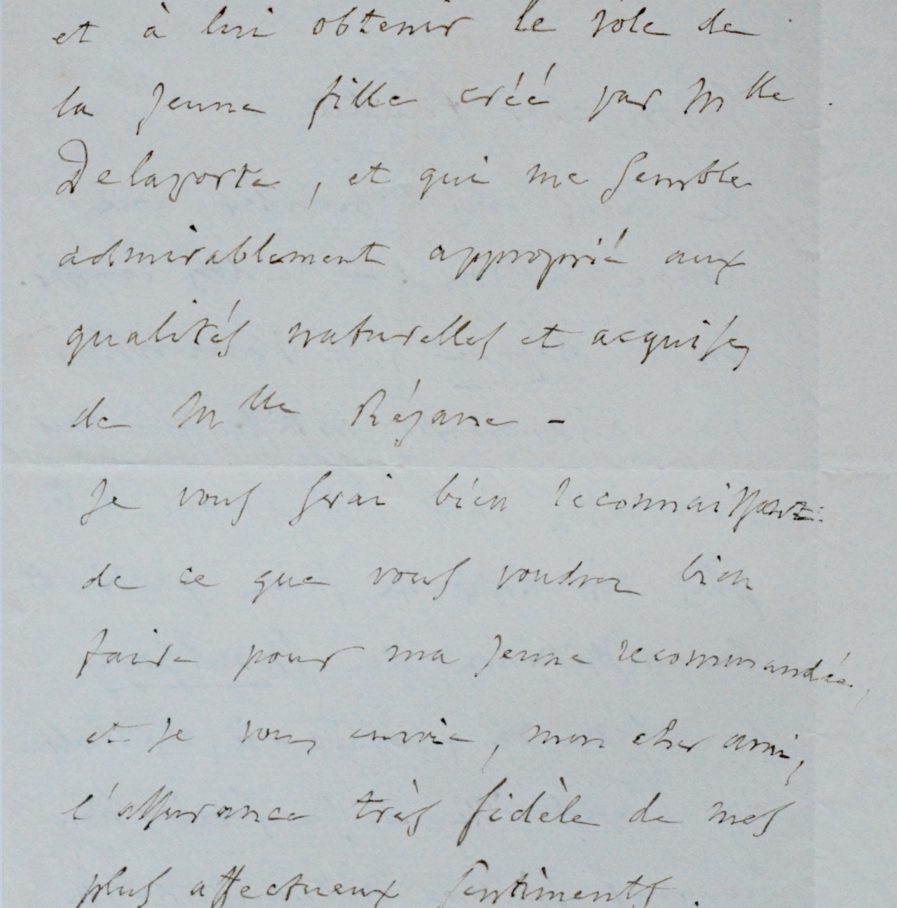 et à lui obtenir le role de
la jeune fille créé par Mlle
Delaporte, et qui me semble
admirablement approprié aux
qualités naturelles et acquises
de Mlle Réjane -
je vous serai bien reconnaissant
de ce que vous voudrez bien
faire pour ma jeune recommandée,
et je vous envoie, mon cher ami,
l'assurance très fidèle de mes
plus affectueux sentiments.